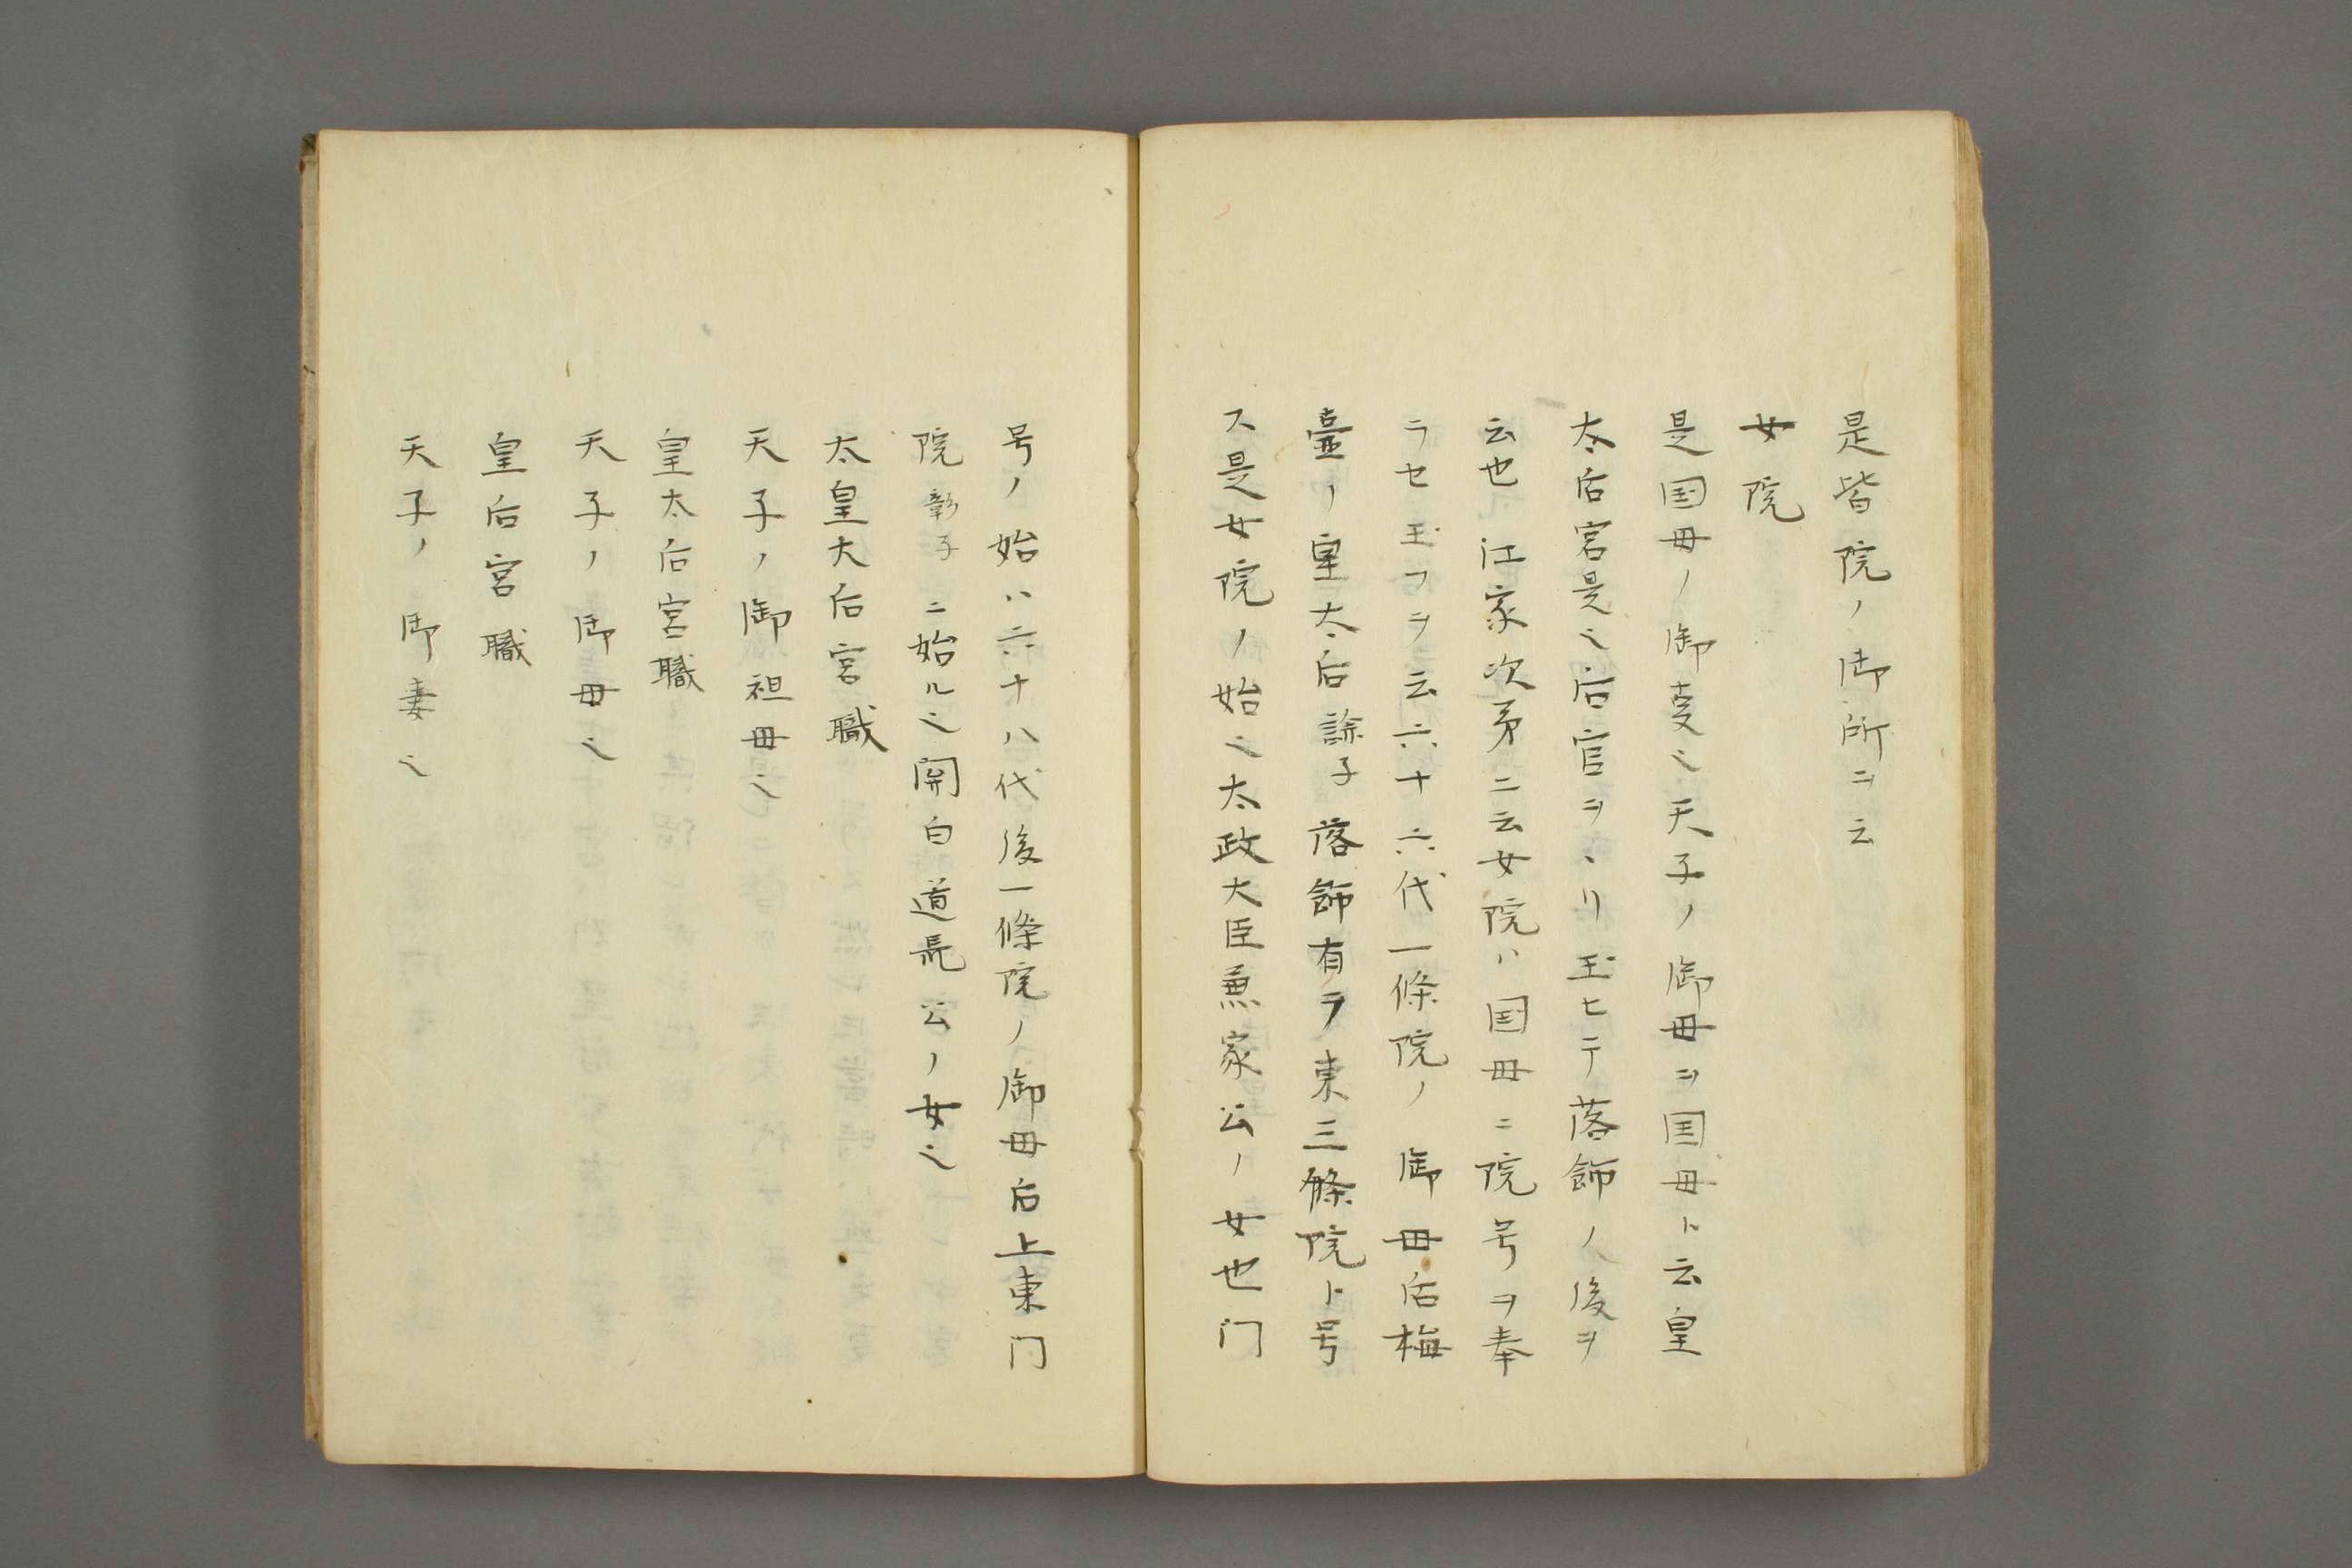 是皆院ノ御所ヲ云
女院
是国母ノ御㕝也天子ノ御母ヲ国母ト云皇
太后宮是也后官ヲヽリ玉ヒテ落飾ノ後ヲ
云也江家次第ニ云女院ハ国母ニ院号ヲ奉
ラセ玉フヲ云六十六代一條院ノ御母后梅
壷ノ皇太后詮子落飾有ラ東三條院ト号
ス是女院ノ始也太政大臣兼家公ノ女也门
号ノ始ハ六十八代後一條院ノ御母后上東门
院彰子ニ始ル也関白道長公ノ女也
太皇大后宮職
天子ノ御祖母也
皇太后宮職
天子ノ御母也
皇后宮職
天子ノ御妻也